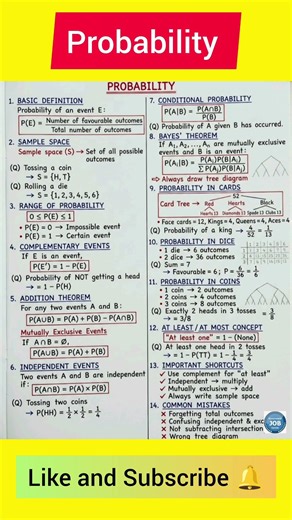 Probability
PROBABILITY
1. BASIC DEFINITION
Probability of an event E:
P(E) = Number of favourable outcomes / Total number of outcomes
2. SAMPLE SPACE
Sample space (S) → Set of all possible outcomes
(Q) Tossing a coin
→ S = {H, T}
(Q) Rolling a die
→ S = {1, 2, 3, 4, 5, 6}
3. RANGE OF PROBABILITY
0 ≤ P(E) ≤ 1
• P(E) = 0 → Impossible event
• P(E) = 1 → Certain event
4. COMPLEMENTARY EVENTS
If E is an event,
P(E') = 1 - P(E)
(Q) Probability of NOT getting a head
→ = 1 - P(H)
5. ADDITION THEOREM
For any two events A and B:
P(A∪B) = P(A) + P(B) - P(A∩B)
Mutually Exclusive Events
If A∩B = Ø,
P(A∪B) = P(A) + P(B)
6. INDEPENDENT EVENTS
Two events A and B are independent
if: P(A∩B) = P(A) × P(B)
(Q) Tossing two coins
→ P(HH) = 1/2 × 1/2 = 1/4
7. CONDITIONAL PROBABILITY
P(A|B) = P(A∩B) / P(B)
(Q) Probability of A given B has occurred.
8. BAYES' THEOREM
If A₁, A₂, ..., Aₙ are mutually exclusive
events and B is an event:
⇒ Always draw tree diagram
9. PROBABILITY IN CARDS
52
Card Tree → Red Hearts Black
Hearts 13 Diamonds 13 Spade 13 Clubs 13
• Face cards = 12, Kings = 4, Queens = 4, Aces = 4
(Q) Probability of a king → 4/52 = 1/13
10. PROBABILITY IN DICE
• 1 die → 6 outcomes
• 2 dice → 36 outcomes
(Q) Sum = 7
→ Favourable = 6; P = 6/36 = 1/6
11. PROBABILITY IN COINS
• 1 coin → 2 outcomes
• 2 coins → 4 outcomes
• 3 coins → 8 outcomes
(Q) Exactly 2 heads in 3 tosses = 3/8
→ = 3/8
12. AT LEAST / AT MOST CONCEPT
"At least one" = 1 - (None)
(Q) At least one head in 2 tosses
→ = 1 - P(TT) = 1 - 1/4 = 3/4
13. IMPORTANT SHORTCUTS
✓ Use complement for "at least"
✓ Independent → multiply
✓ Mutually exclusive → add
✓ Always write sample space
14. COMMON MISTAKES
✗ Forgetting total outcomes
✗ Confusing independent &
✗ Not subtracting intersection
✗ Wrong tree diagram
JOB
Like and Subscribe 🔔